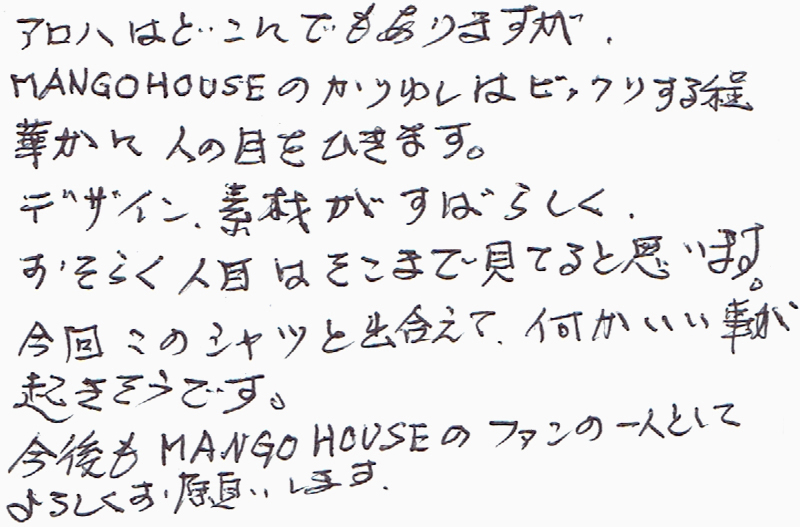 アロハはどこにでもありますが、
MANGOHOUSEのかりゆしはビックリする程
華かに人の目をひきます。
デザイン、素材がすばらしく、
おそらく人目はそこまで見てると思います。
今回このシャツと出合えて、何かいい事が
起きそうです。
今後もMANGO HOUSEのファンの一人として
よろしくお願いします。